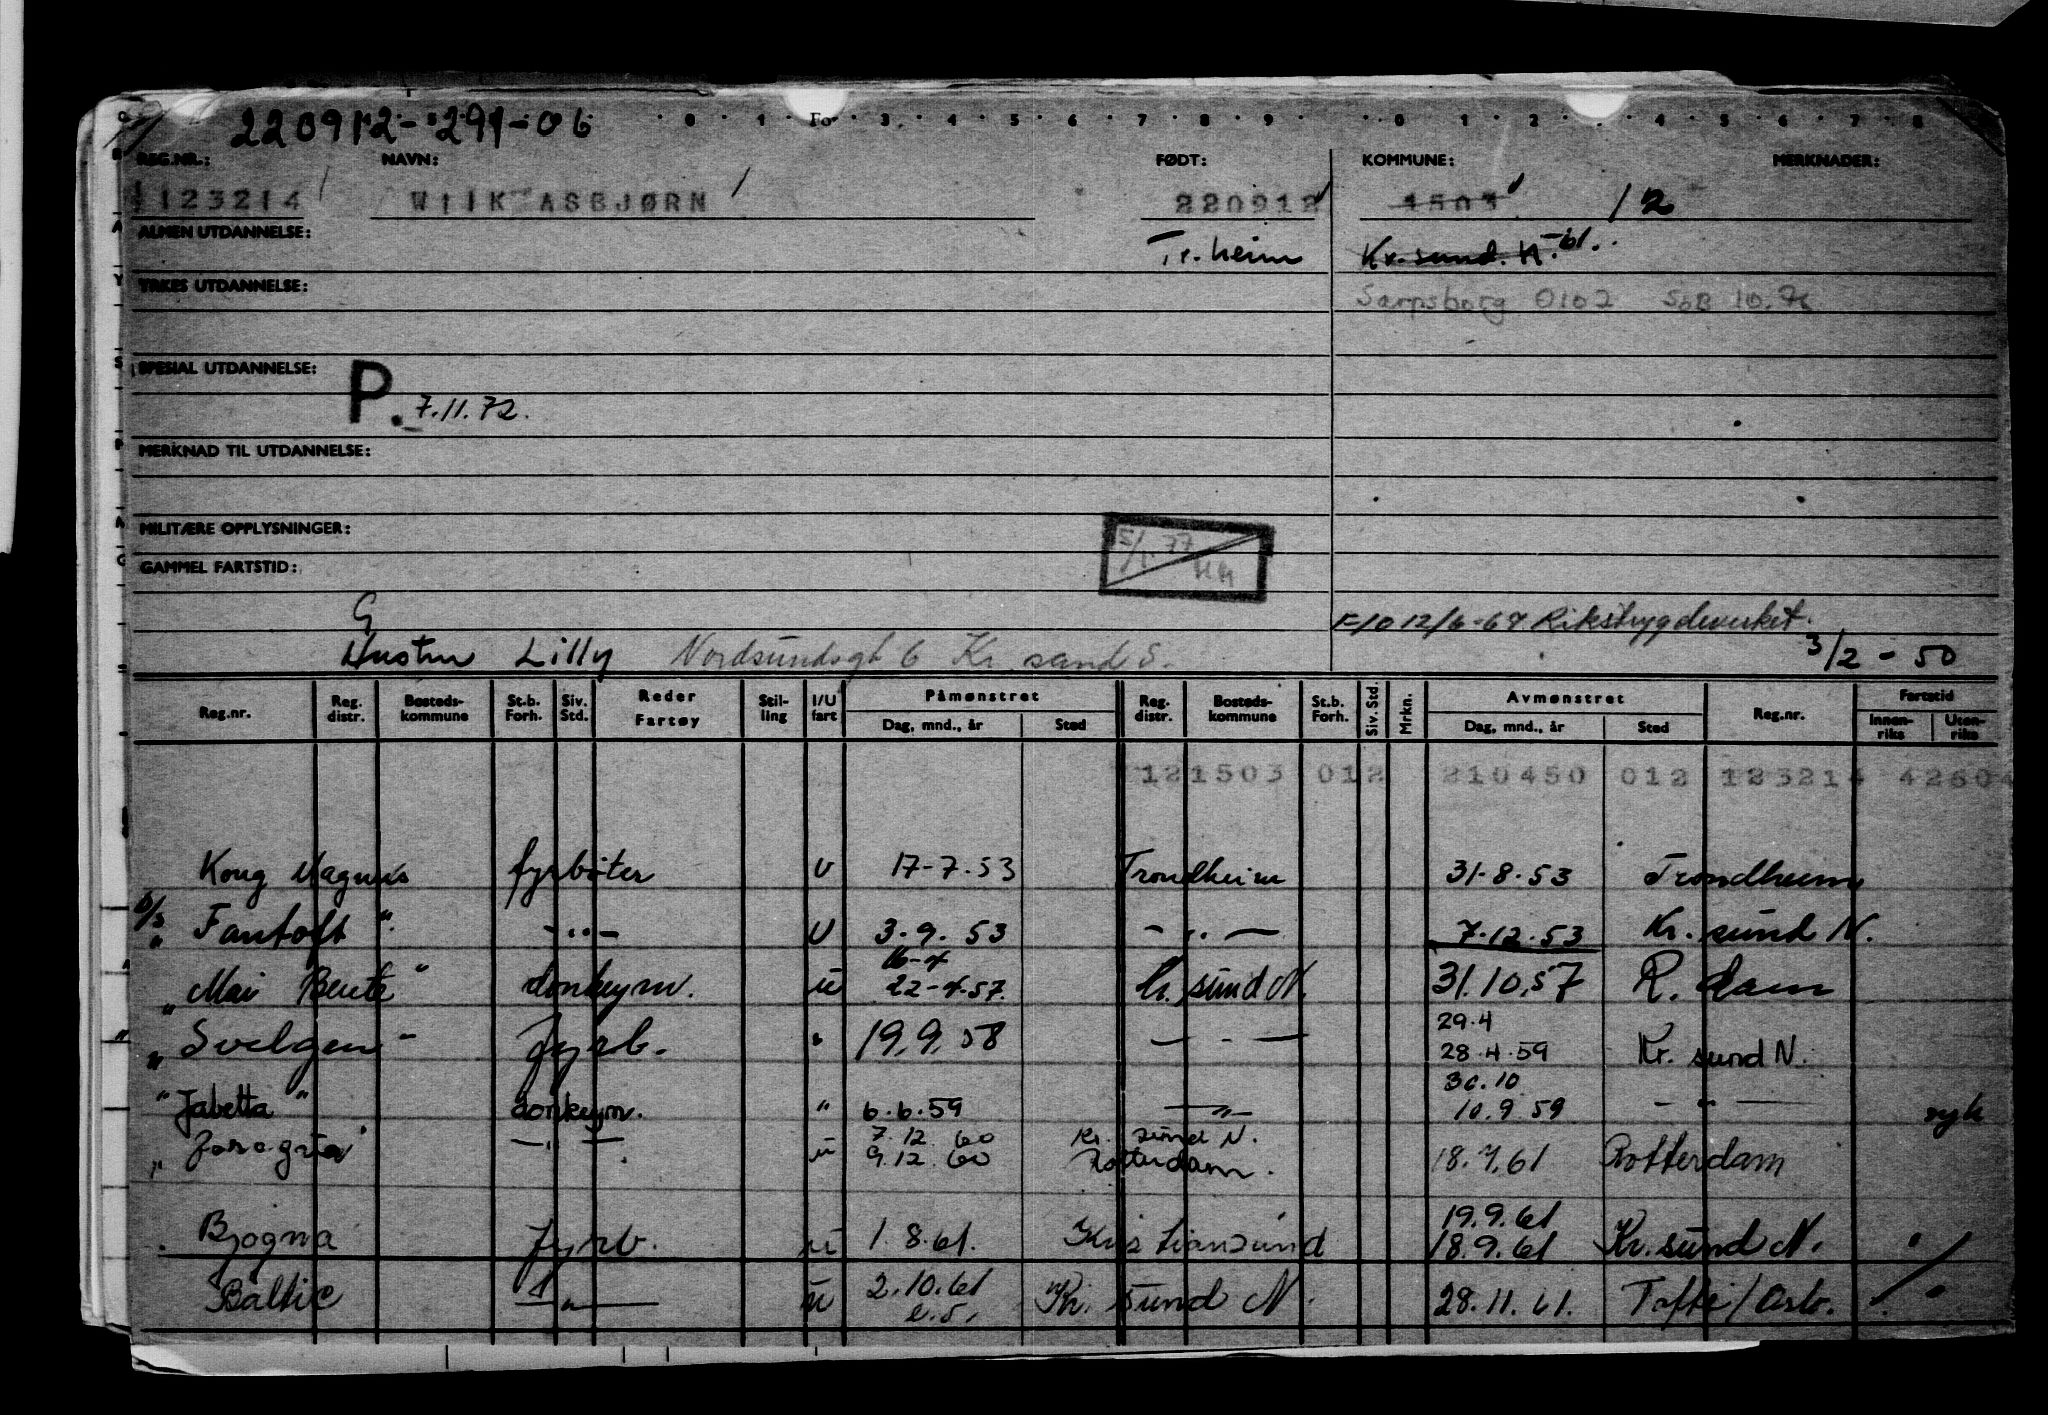 220912-291-06
REG.NR.: NAVN: FØDT: KOMMUNE: MERKNADER:
123214 WIIK ASBJØRN 220912 1503 12
ALMEN UTDANNELSE: Tr.heim Kr.sund. N. -61.
YRKES UTDANNELSE: Sarpsborg 0102 10.76
SPESIAL UTDANNELSE:
P. 7.11.72.
MERKNAD TIL UTDANNELSE:
MILITÆRE OPPLYSNINGER:
GAMMEL FARTSTID:
G
F/O 12/6-67 Rikstrygdeverket.
Hustru Lilly Nordsundsgt 6 Kr. sund S. 3/2 - 50
Reg.nr. Reg. distr. Bosteds-kommune St.b. Forh. Siv. Std. Reder Fartøy Stil-ling I/U fart Påmønstret Dag, mnd., år Sted Reg. distr. Bosteds-kommune St.b. Forh. Siv. Std. Mrkn. Avmønstret Dag, mnd., år Sted Reg.nr. Fartstid Innen-riks Uten-riks
121503 012 210450 012 123214 4260
Kong Magnus fyrbøter U 17-7.53 Trondheim 31.8.53 Trondheim
D/S "Fantoft" -"- U 3.9.53 -"- 7.12.53 Kr.sund N.
" Mai Bente" donkeym. u 22-4.57. Kr.sund N. 31.10.57 R.dam
" Svelgen" fyrb. " 19.9.58 - " - 29.4 28.4.59 Kr.sund N.
"Jabetta" donkeym. " 6.6.59 -"- 30.10 10.9.59 -"- syk
" -"- u 7.12.60 9.12.60 Kr.sund N. Rotterdam. 18.7.61 Rotterdam
Bjogna fyrb. u 1.8.61. Kristiansund 19.9.61 18.9.61 Kr.sund N.
Baltic -"- u 2.10.61 Kr.sund N. 28.11.61. Tofte/Oslo.